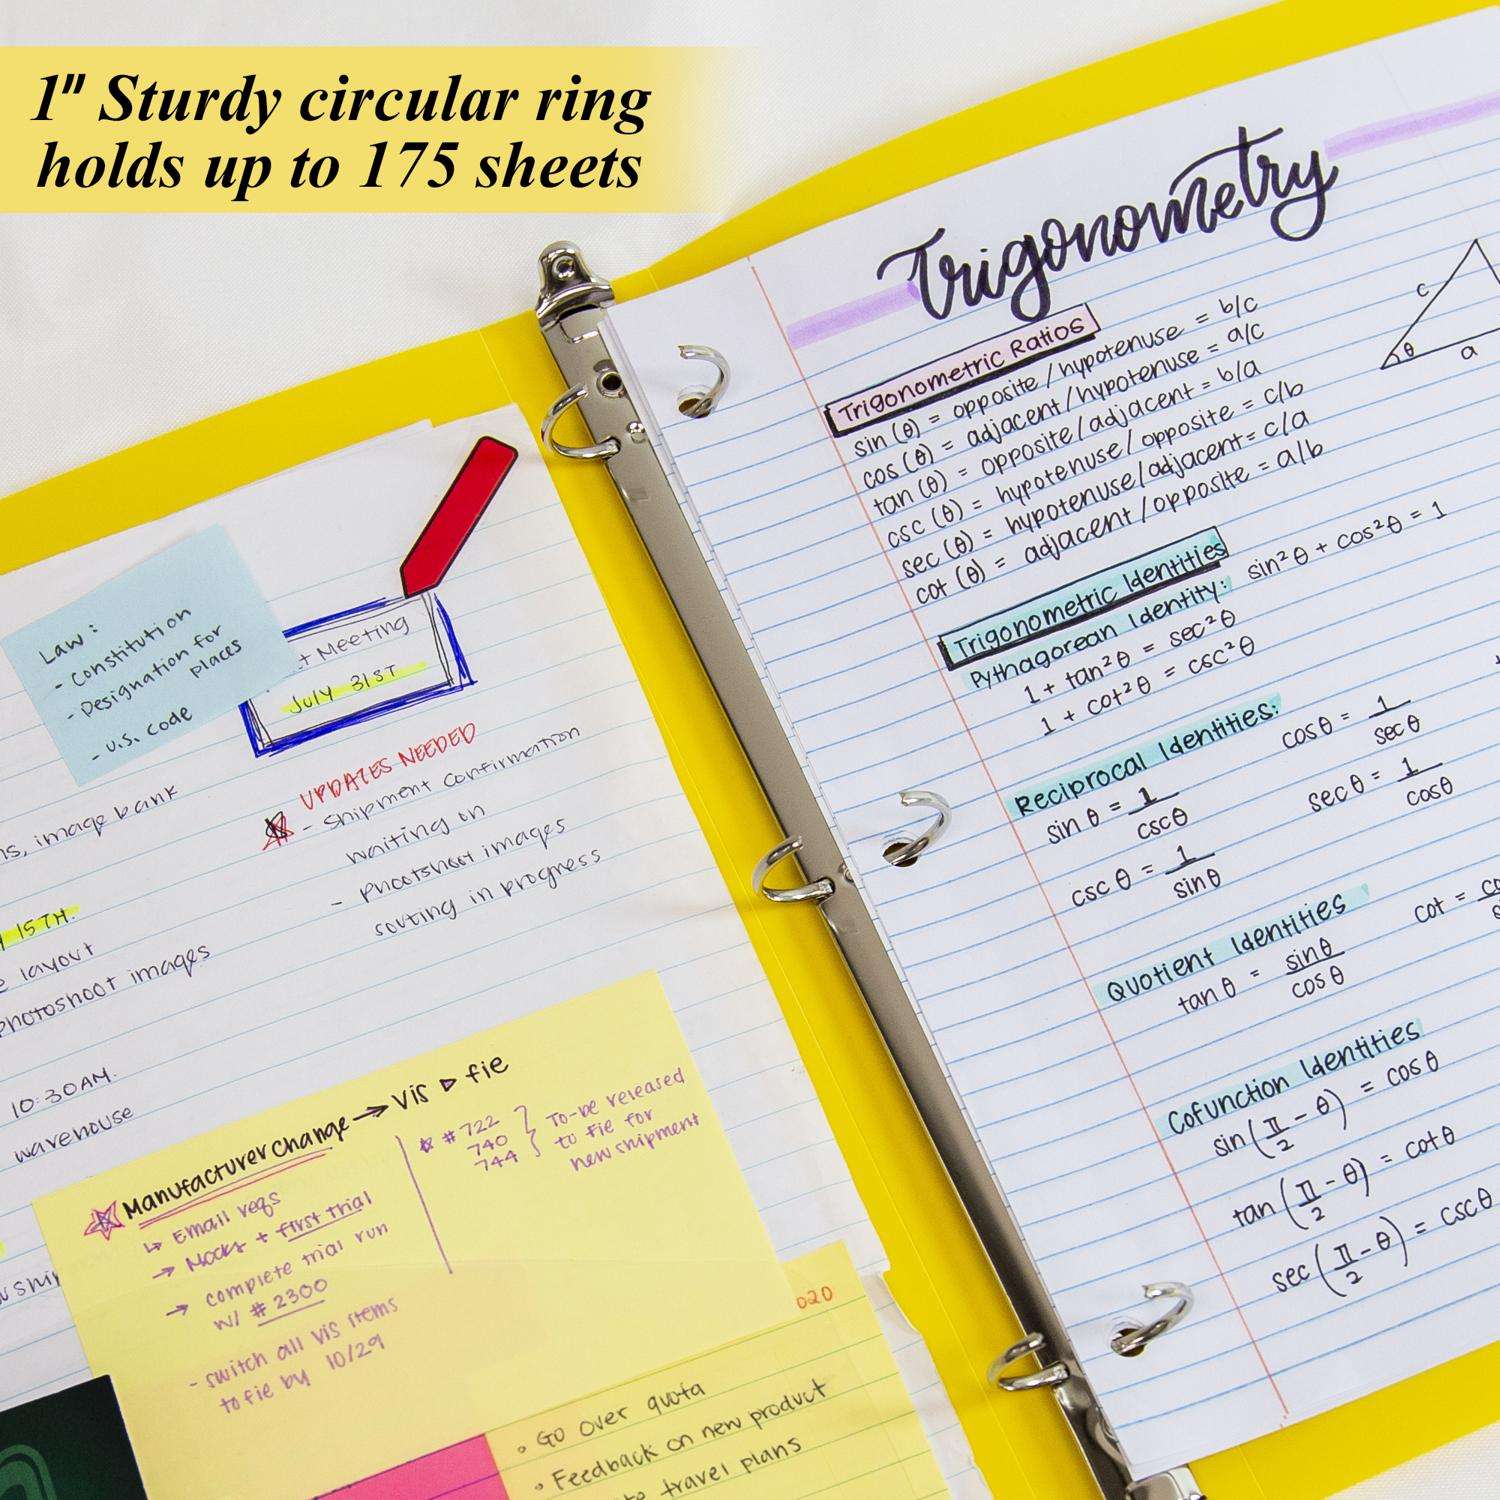 1" Sturdy circular ring
holds up to 175 sheets
Law:
- Constitution
- Designation for
places
- U.S. code
Meeting
July 31ST
UPDATES NEEDED
- Shipment confirmation
waiting on
- Photoshoot images
sorting in progress
image bank
15TH.
layout
Photoshoot images
10:30AM.
warehouse
Manufacturer Change → Vis ▷ fie
↳ Email reqs
→ Mocks + first trial
→ complete trial run
w/ #2300
- switch all vis items
to fie by 10/29
☆ #722
740
744
To-be released
to fie for
new shipment
020
• Go over quota
• Feedback on new product
travel plans
Trigonometry
c
θ
a
Trigonometric Ratios
sin (θ) = opposite/hypotenuse = b/c
cos (θ) = adjacent/hypotenuse = a/c
tan (θ) = opposite/adjacent = b/a
csc (θ) = hypotenuse/opposite = c/b
sec (θ) = hypotenuse/adjacent = c/a
cot (θ) = adjacent/opposite = a/b
Trigonometric Identities
Pythagorean Identity: sin²θ + cos²θ = 1
1 + tan²θ = sec²θ
1 + cot²θ = csc²θ
Reciprocal Identities: cosθ = 1/secθ
sinθ = 1/cscθ secθ = 1/cosθ
cscθ = 1/sinθ
Quotient Identities cot =
tanθ = sinθ/cosθ
Cofunction Identities
sin(π/2 - θ) = cosθ
tan(π/2 - θ) = cotθ
sec(π/2 - θ) = cscθ